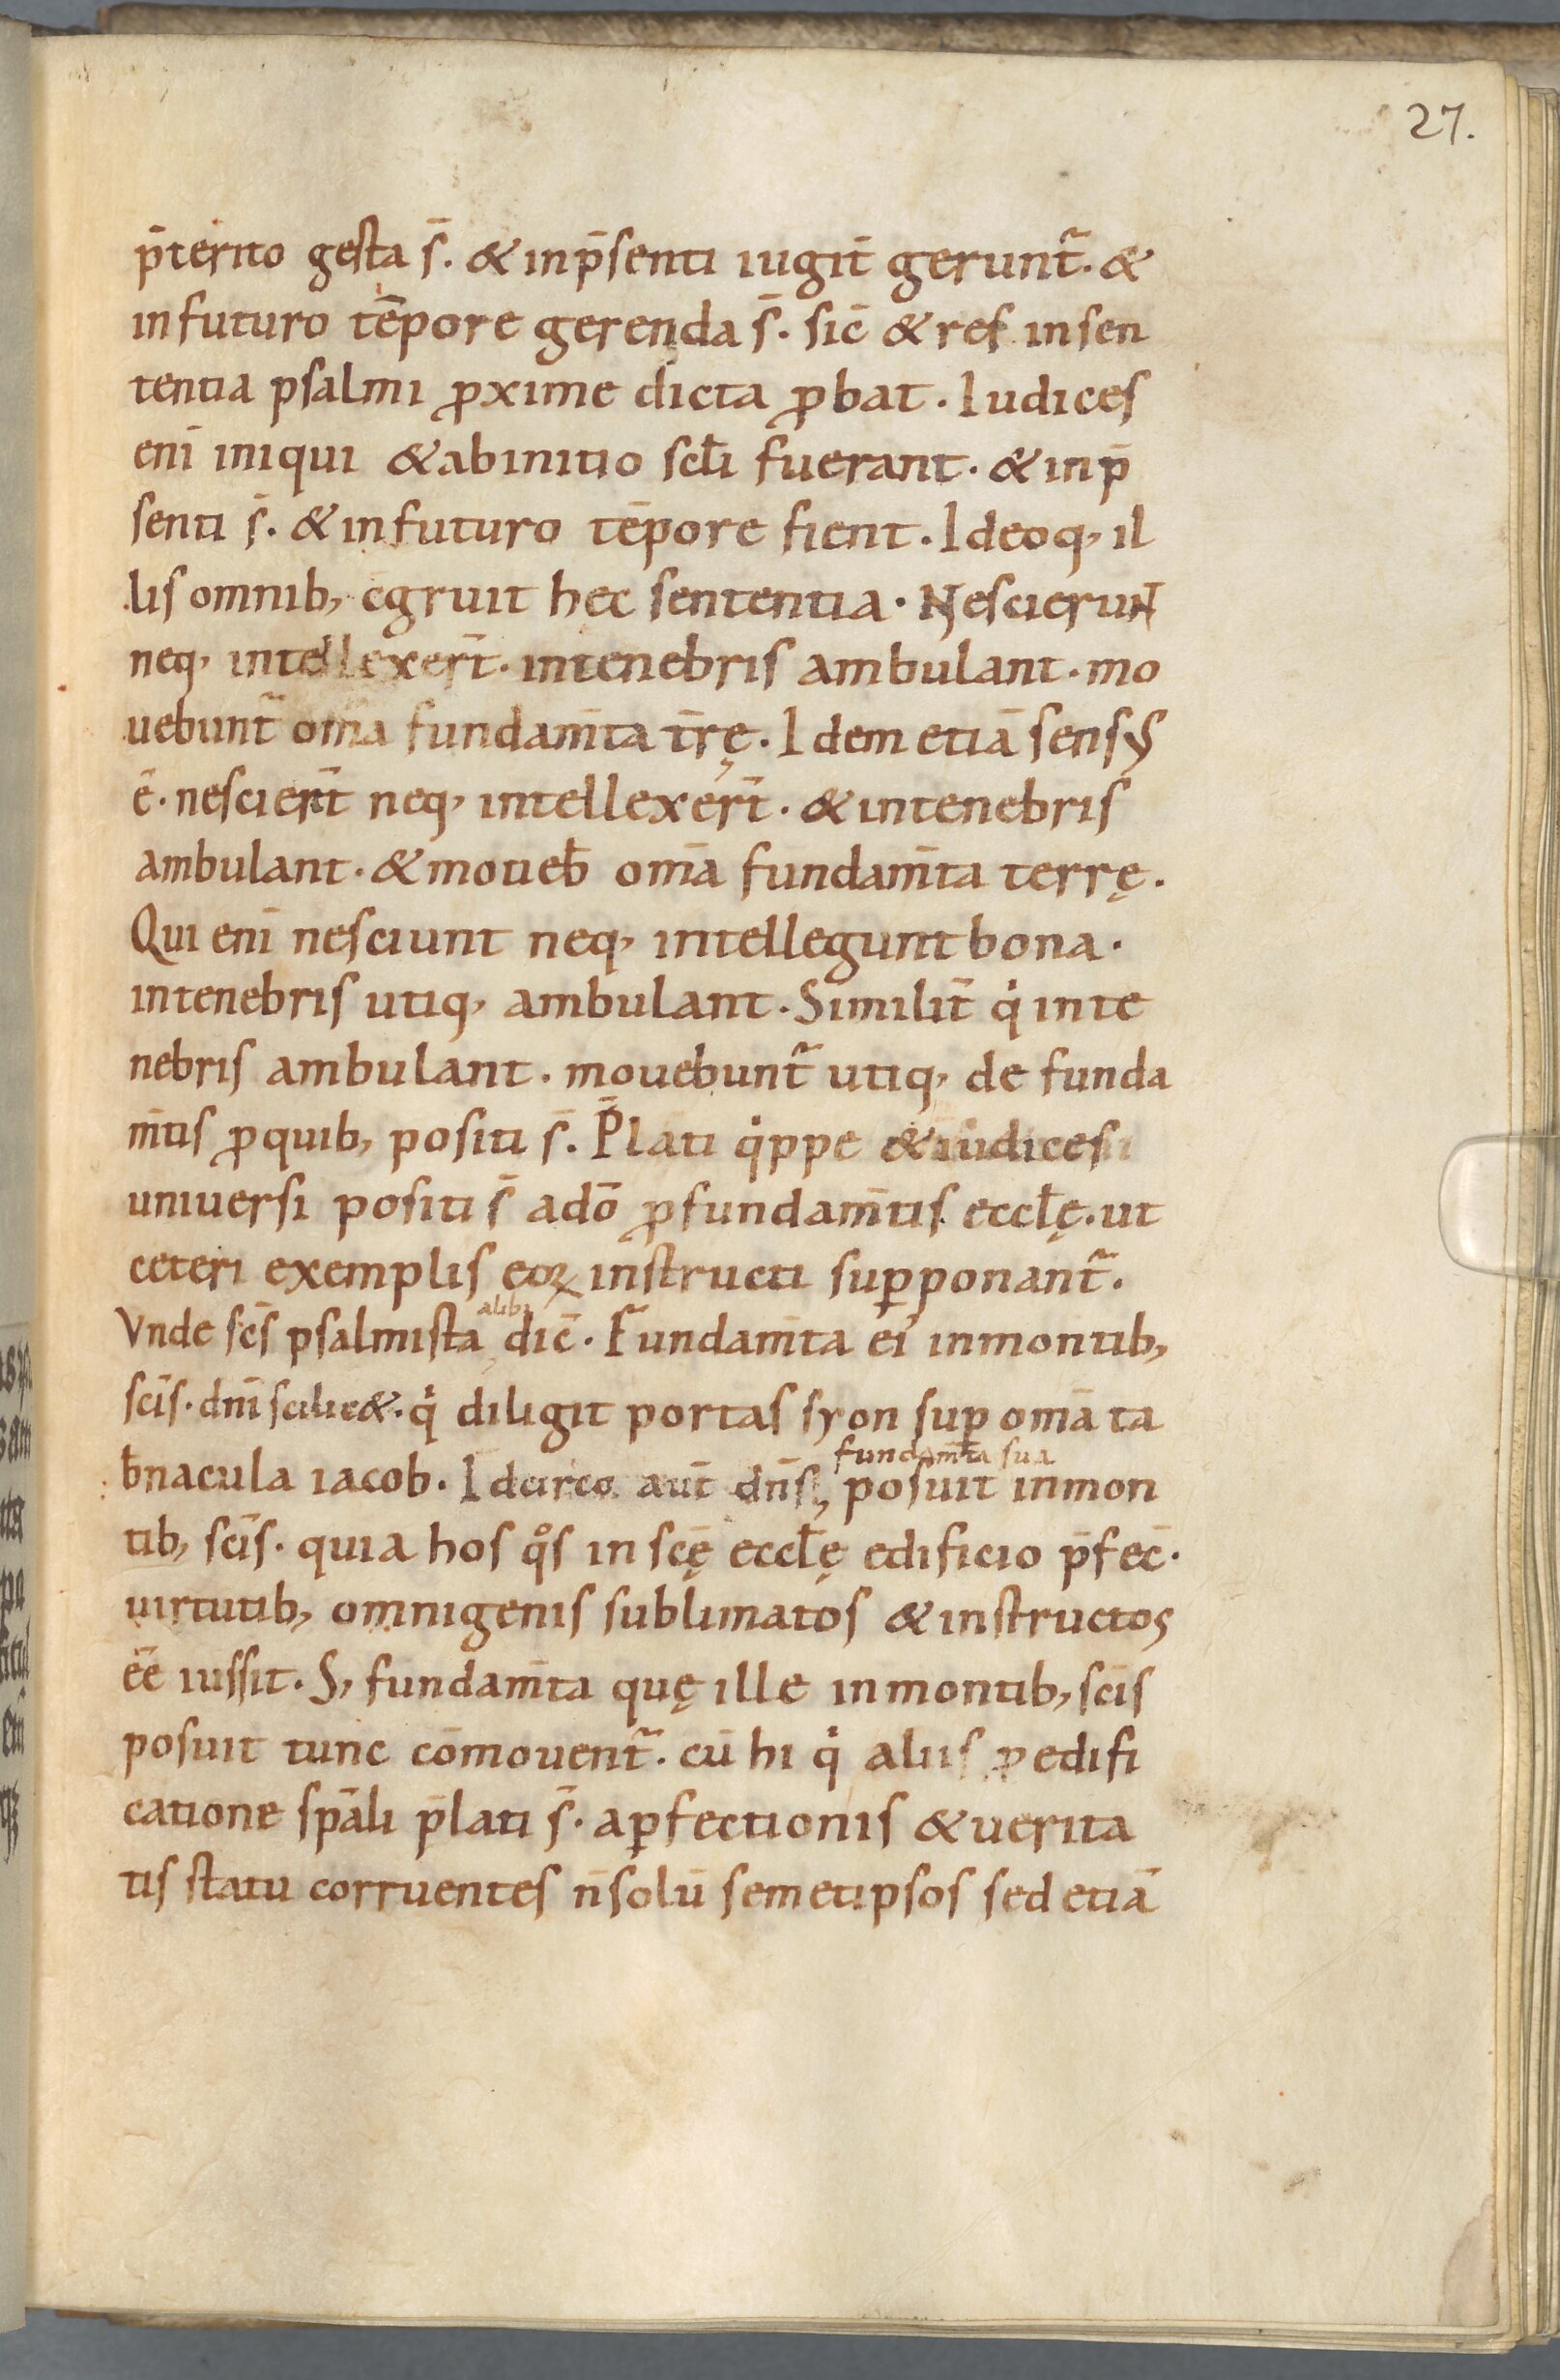 27.
p̄terito gesta s̄. & inp̄senti iugit̄ gerunt᷑. &
infuturo tēpore gerenda s̄. sic̄ & res insen
tentia psalmi ꝓxime dicta ꝓbat. Iudices
enī iniqui & abinitio sc̄li fuerant. & inp̄
senti s̄. & infuturo tēpore fient. Ideoq, il
lis omnib, c̄gruit hec sententia. NescieruN
neq, intellexer̄t. intenebris ambulant. mo
uebunt᷑ om̄a fundam̄ta t̄rę. Idem etiā sensꝰ
ē. nescier̄t neq, intellexer̄t. & intenebris
ambulant. & moueb̄ om̄a fundam̄ta terrę.
Qui enī nesciunt neq, intellegunt bona.
intenebris utiq, ambulant. Similit̄ qͥ inte
nebris ambulant. mouebunt᷑ utiq, de funda
m̄tis ꝓquib, positi s̄. P̄lati qͥppe & iudices
uniuersi positi s̄ adō ꝓfundam̄tis eccłę. ut
ceteri exemplis eoꝝ instructi suꝑponant᷑.
alibi
Vnde sc̄s psalmista, dic̄. Fundam̄ta eiꝰ inmontib,
sc̄is. dn̄i scilic&. qͥ diligit portas syon suꝑ om̄a ta
fundam̄ta sua
b̄nacula iacob. Idcirco aut̄ dn̄s, posuit inmon
tib, sc̄is. quia hos qͦs in sc̄ę eccłę edificio p̄fec̄.
uirtutib, omnigenis sublimatos & instructos
ēe iussit. S, fundam̄ta quę ille inmontib, sc̄is
posuit tunc cōmouent᷑. cū hi qͥ aliis ꝓ edifi
catione sp̄ali p̄lati s̄. aꝑfectionis & uerita
tis statu corruentes n̄ solū semetipsos sed etiā